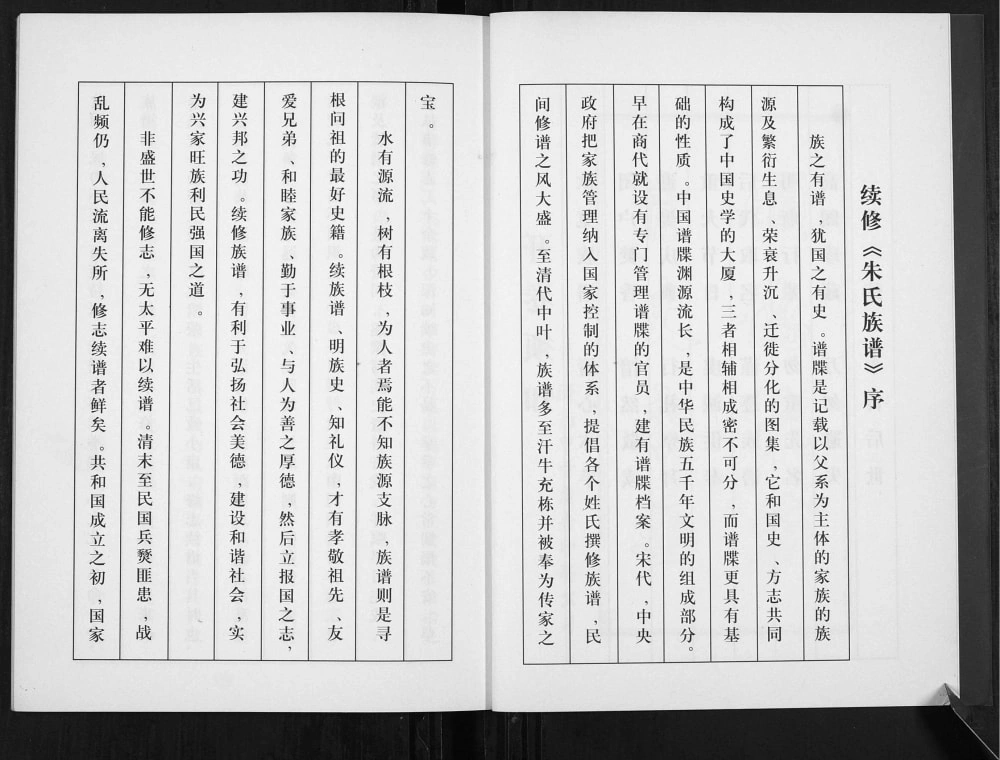 续修《朱氏族谱》序
族之有谱,犹国之有史。谱牒是记载以父系为主体的家族的族
源及繁衍生息、荣衰升沉、迁徙分化的图集,它和国史、方志共同
构成了中国史学的大厦,三者相辅相成密不可分,而谱牒更具有基
础的性质。中国谱牒渊源流长,是中华民族五千年文明的组成部分。
早在商代就设有专门管理谱牒的官员,建有谱牒档案。宋代,中央
政府把家族管理纳入国家控制的体系,提倡各个姓氏撰修族谱,民
间修谱之风大盛。至清代中叶,族谱多至汗牛充栋并被奉为传家之
宝。
水有源流,树有根枝,为人者焉能不知族源支脉,族谱则是寻
根问祖的最好史籍。续族谱、明族史、知礼仪,才有孝敬祖先、友
爱兄弟、和睦家族、勤于事业、与人为善之厚德,然后立报国之志,
建兴邦之功。续修族谱,有利于弘扬社会美德,建设和谐社会,实
为兴家旺族利民强国之道。
非盛世不能修志,无太平难以续谱。清末至民国兵燹匪患,战
乱频仍,人民流离失所,修志续谱者鲜矣。共和国成立之初,国家